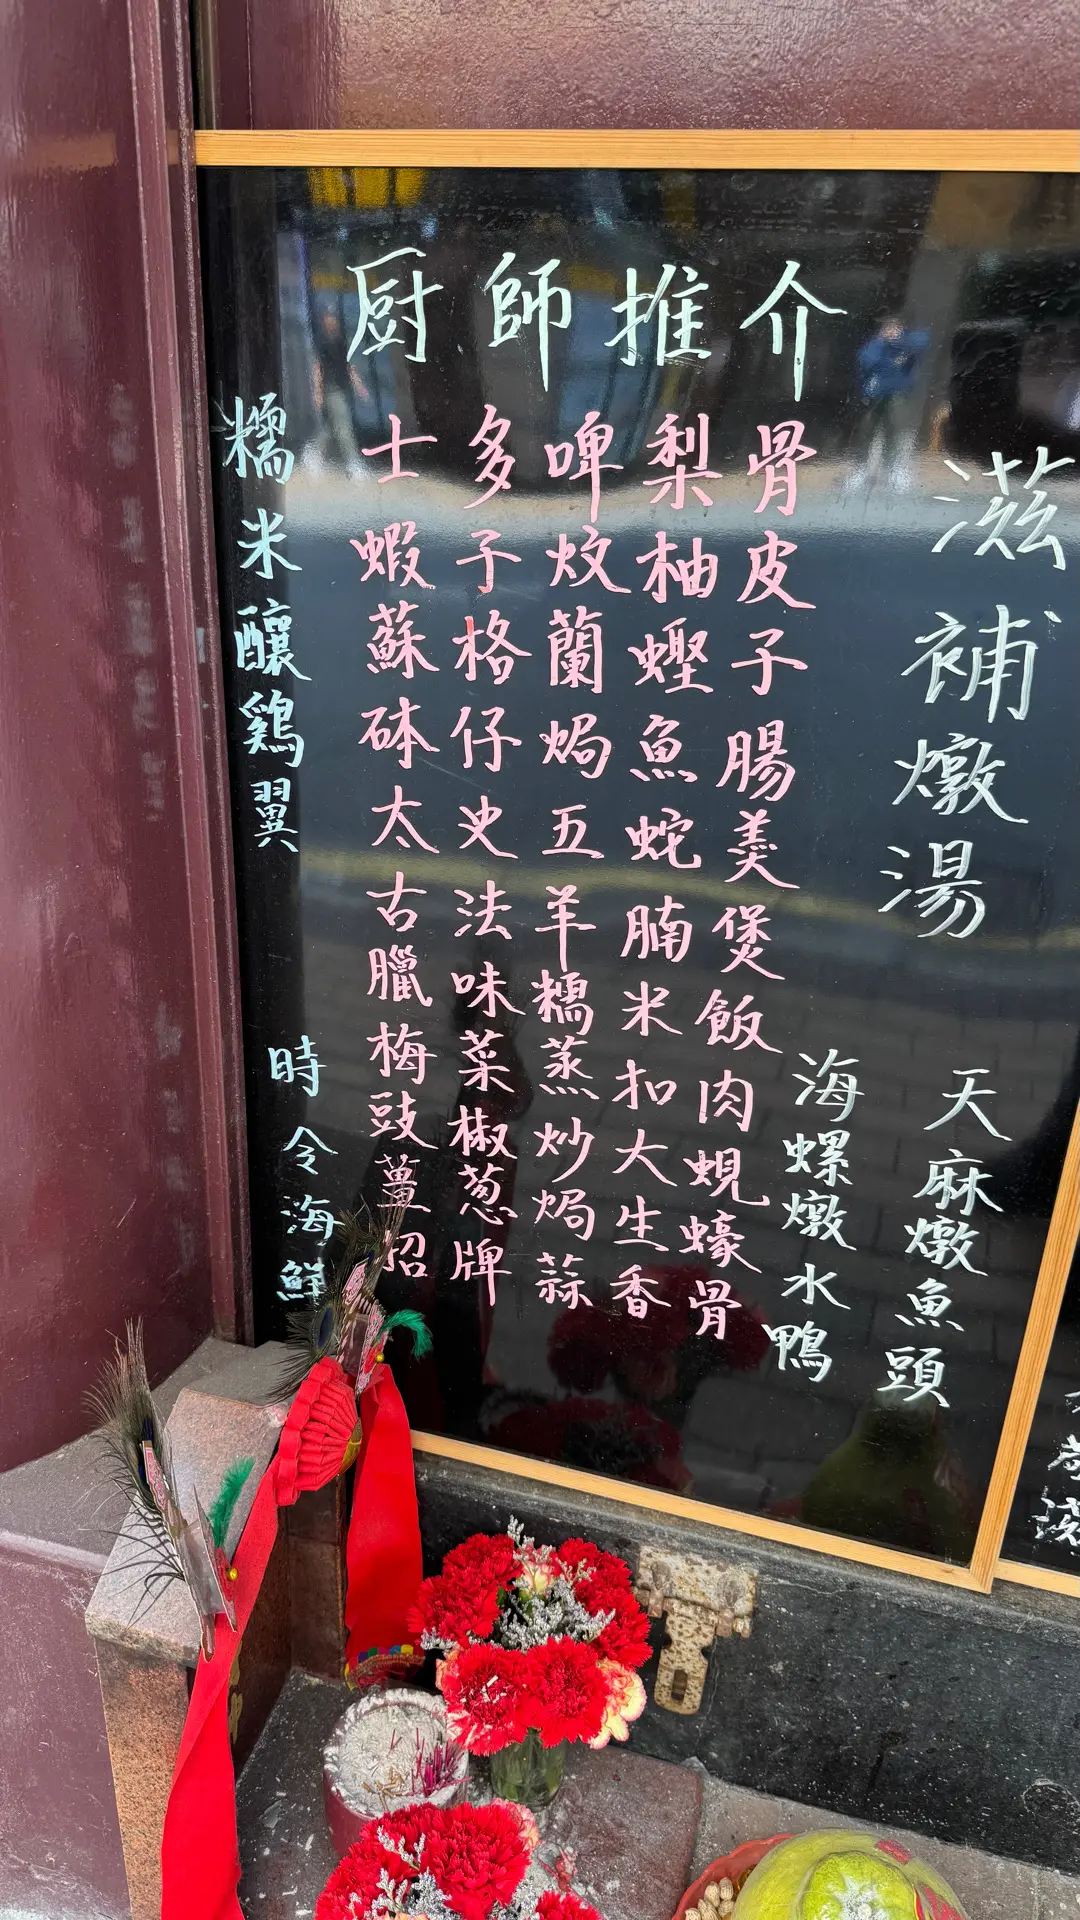 厨師推介
士多啤梨骨
蝦子炆柚皮
蘇格蘭蟶子
砵仔焗魚腸
太史五蛇羹
古法羊腩煲
臘味糯米飯
梅菜蒸扣肉
豉椒炒大蜆
薑葱焗生蠔
招牌蒜香骨
糯米釀鷄翼
時令海鮮
滋補燉湯
天麻燉魚頭
海螺燉水鴨